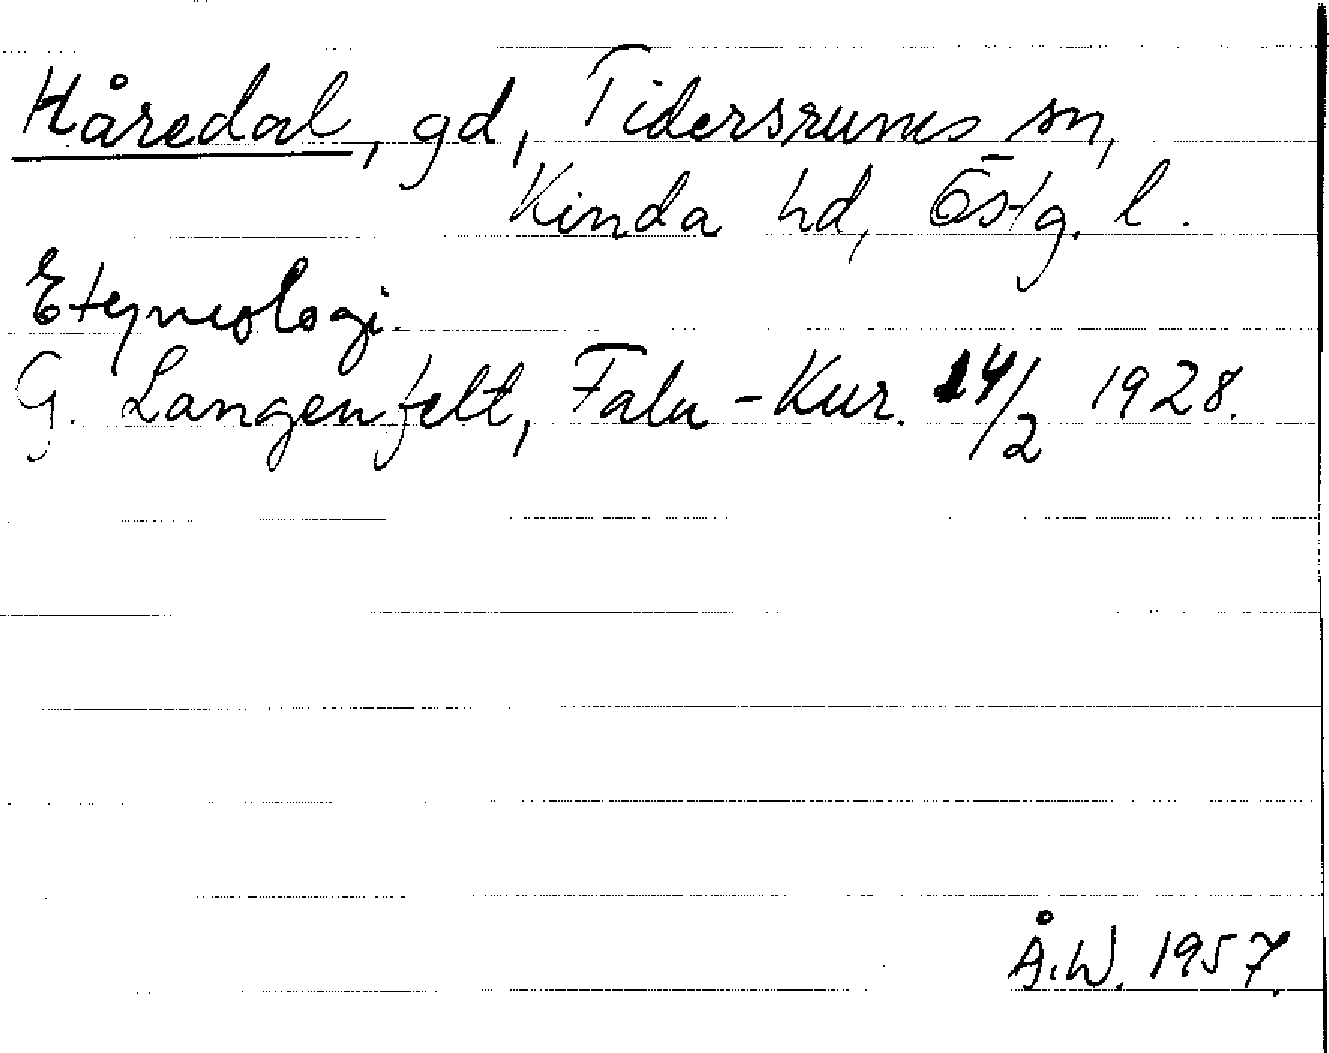 Håredal, gd, Tidersrums sn,
Kinda hd, Östg. l.
Etymologi.
G. Langenfelt, Falu-Kur. 24/2 1928.
Å.W. 1957.